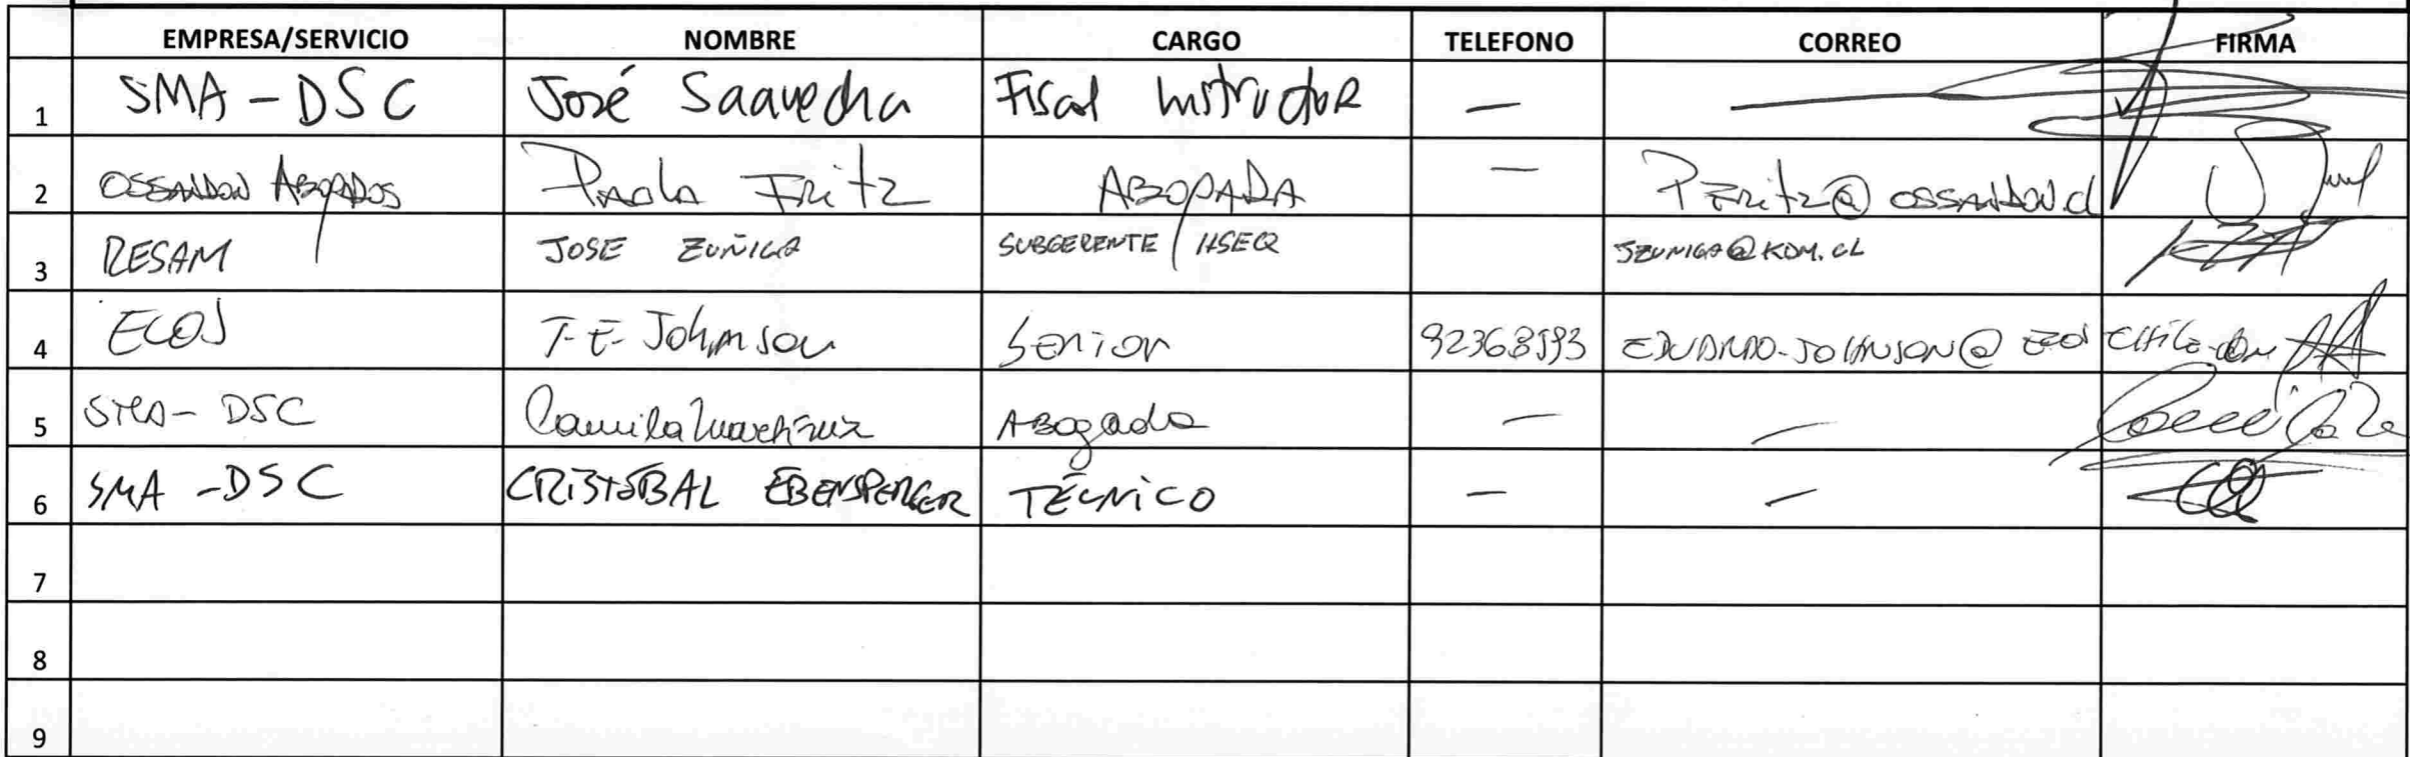 EMPRESA/SERVICIO NOMBRE CARGO TELEFONO CORREO FIRMA
1 SMA - DSC José Saavedra Fiscal Instructor — —
2 OSSANDON ABOGADOS Paola Fritz ABOGADA — PFritz@OSSANDON.cl
3 RESAM JOSE ZUÑIGA SUBGERENTE HSEQ JZUNIGA@KDM.CL
4 ECOS Johnson Senior EDUARDO.JOHNSON@ECOSCHILE.COM
5 SMA - DSC Camila Martínez Abogada — —
6 SMA - DSC CRISTÓBAL EBENSPERGER TÉCNICO — —
7
8
9